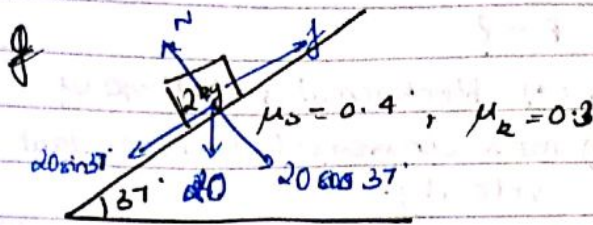 Q
N
f
2kg
μs = 0.4 , μk = 0.3
20sin37°
20
20 cos 37°
37°